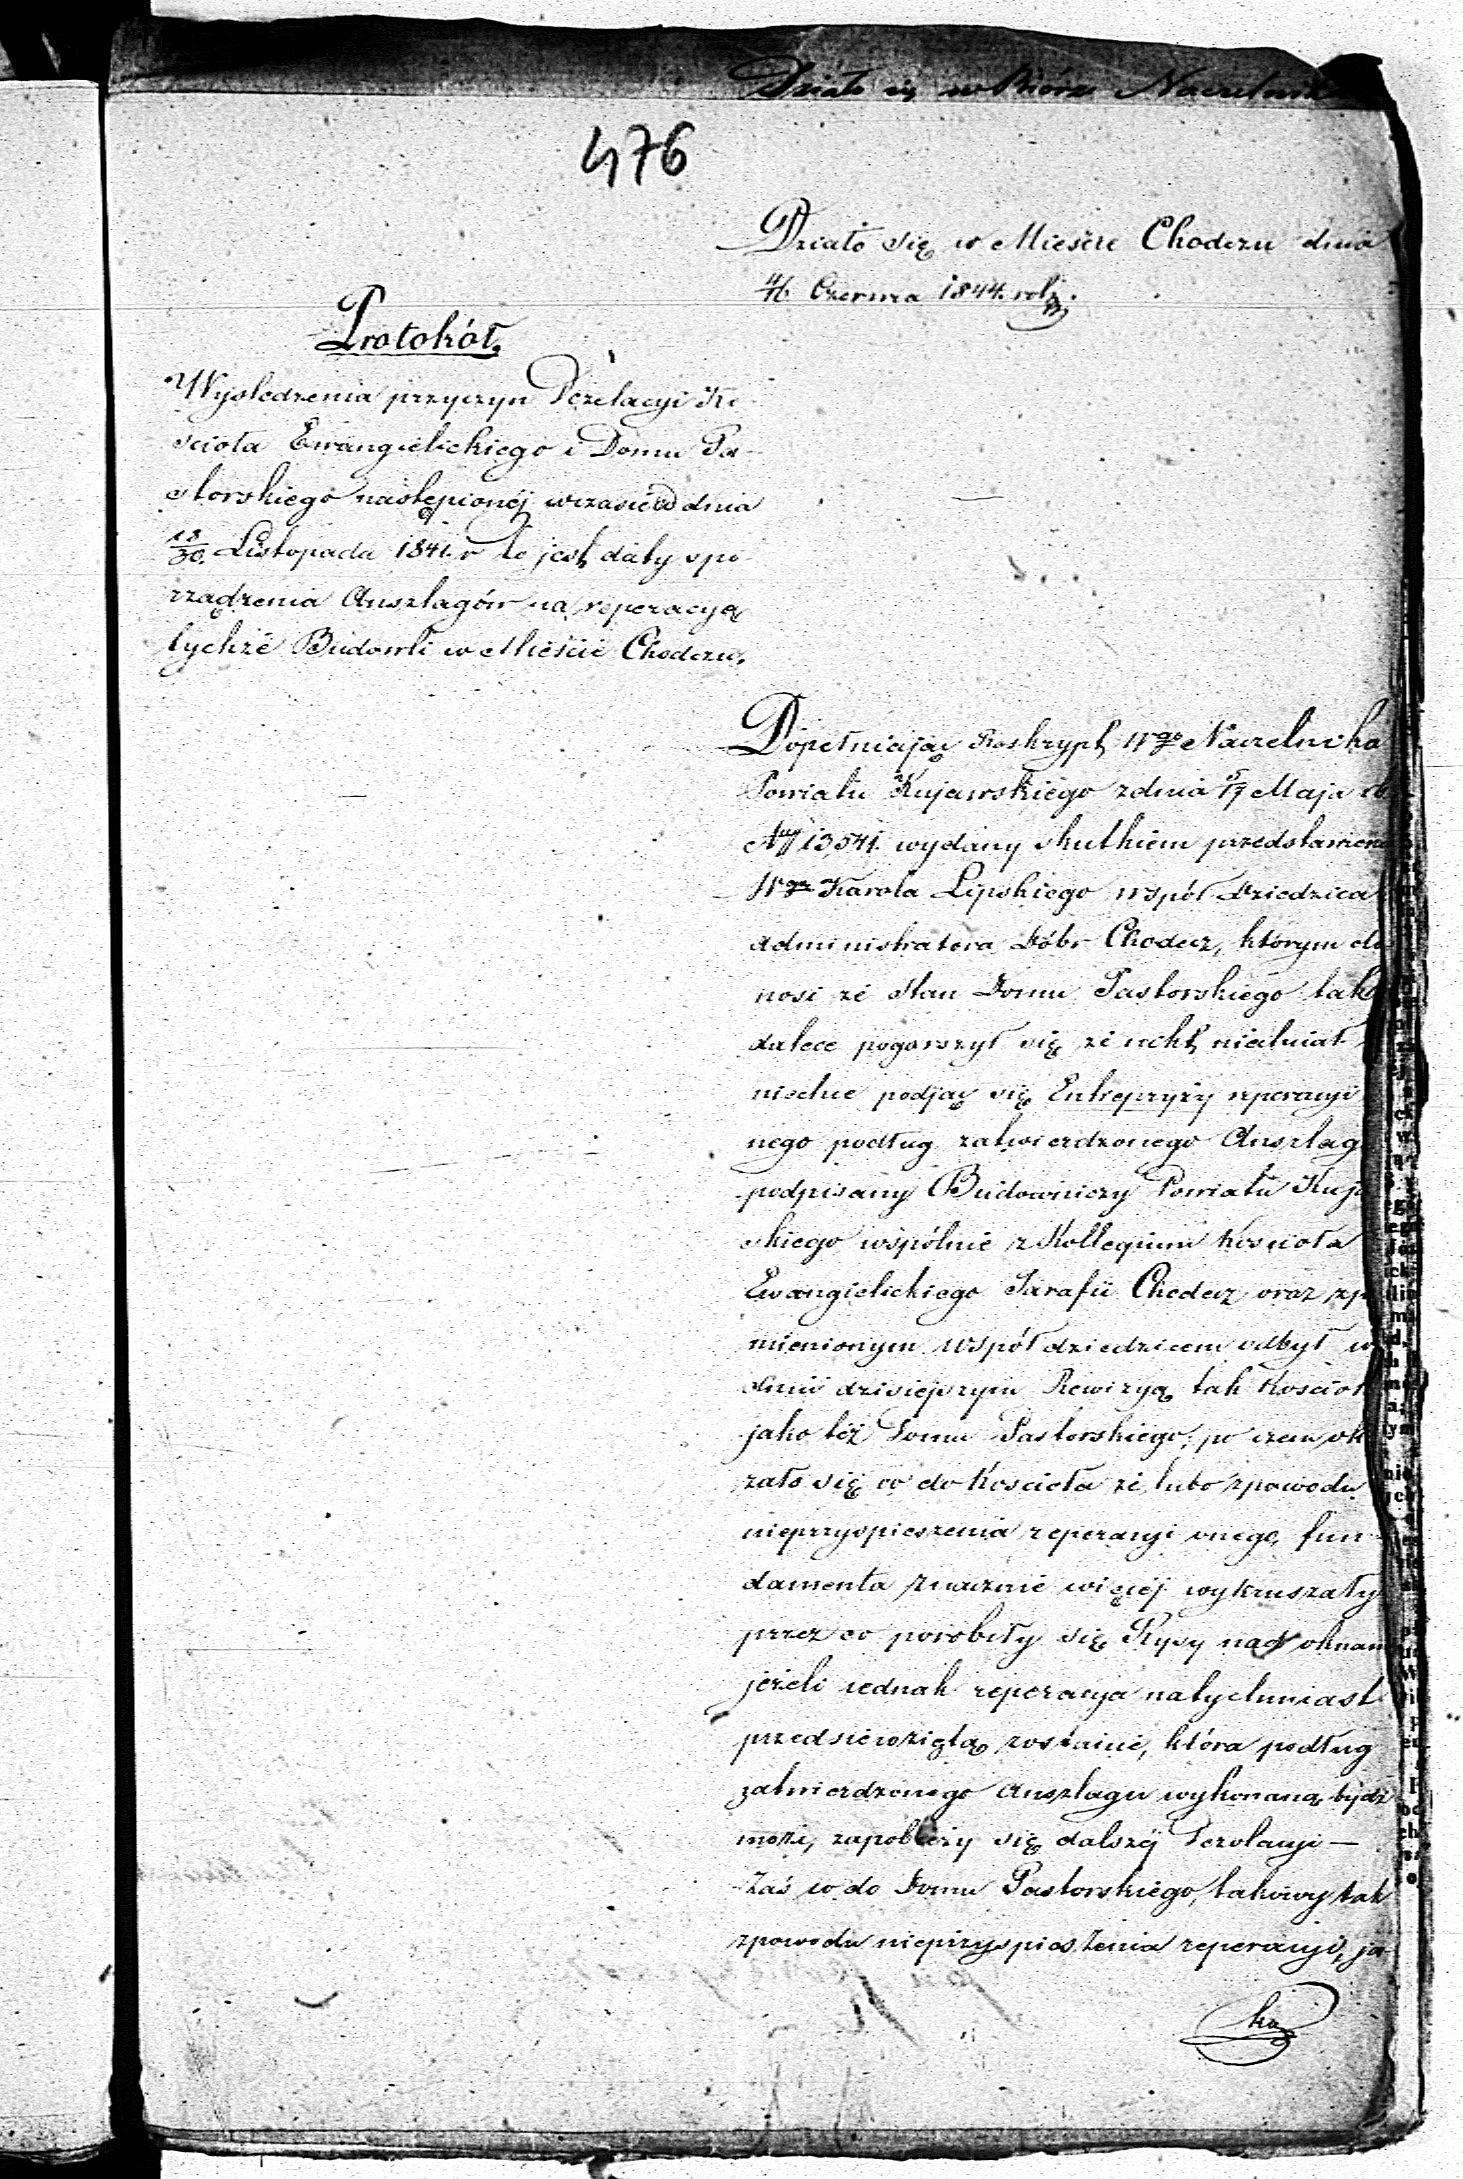 Działo się w Biórze Naczelnik
476
Działo się w Mieście Chodczu dnia
4/16 Czerwca 1844. roku.
Protokół.
Wyśledzenia przyczyn Dezelacyi Ko-
ścioła Ewangielickiego i Domu Pa-
storskiego nastąpionéj wczasie od dnia
18/30. Listopada 1841. r to jest daty spo-
rządzenia Anszlagów na reperacyą
tychże Budowli w Mieście Chodczu.
Dopełniając Reskrypt Wgo Naczelnika
Powiatu Kujawskiégo zdnia 5/17 Maja rb
Nr 13,541. wydany skutkiem przedstawieni
Wgo Karola Lipskiego współ Dziedzica
administratora Dóbr Chodecz, którym do
nosi że stan Domu Pastorskiégo tak
dalece pogorszył się, że nikt
niechce podjąć się Entrepryzy reperacyi
nego podług zatwierdzonego Anszlag
podpisany Budowniczy Powiatu Kuja
skiego wspólnie z Kollegium Kościoła
Ewangielickiego Parafii Chodecz oraz
mienionym współdziedzicem odbył w
dniu dzisiejszym Rewizyą tak Kościoł
jako też Domu Pastorskiego, po czem ok
zało się co do Kościoła że lubo zpowodu
nieprzyspieszenia reperacyi onego, fun-
damenta znacznie więcéj wykruszały
przez co porobiły się Rysy nad oknam
jeżeli jednak reperacya natychmiast
przedsięwziętą zostanie, która podług
zatwierdzonego Anszlagu wykonaną bydź
może, zapobieży się dalszéj Dezolacyi —
Zaś co do Domu Pastorskiégo, takowy tak
zpowodu nieprzyspieszenia reperacyi, ja-
ko